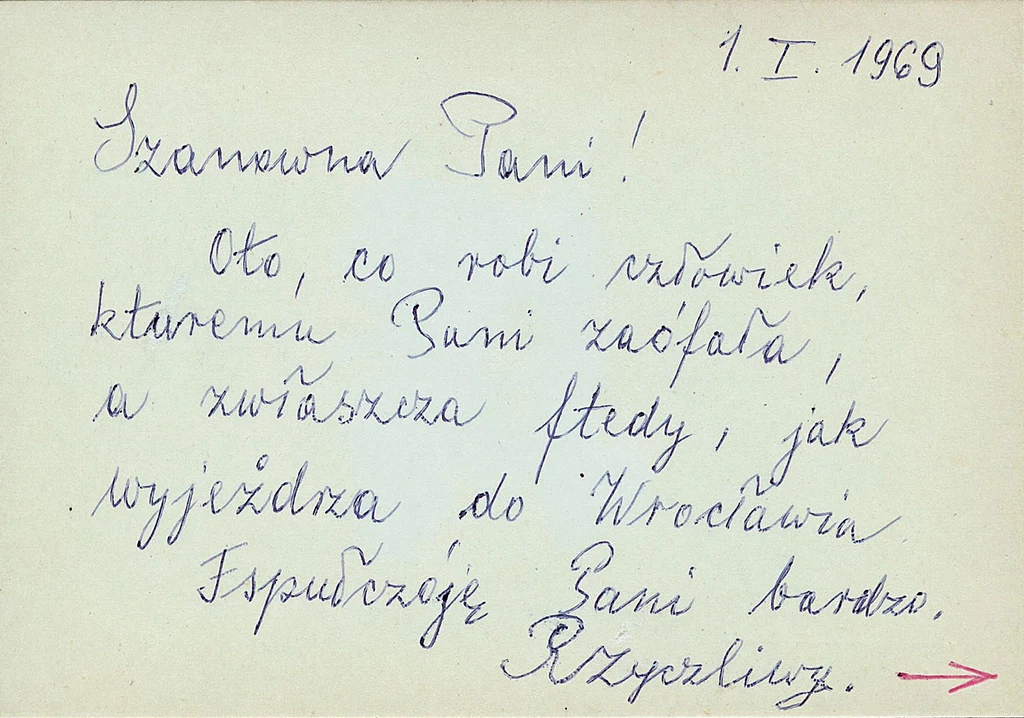 1. I. 1969
Szanowna Pani!
Oto, co robi człowiek,
kturemu Pani zaófała,
a zwłaszcza ftedy, jak
wyjeżdrza do Wrocławia
Fspułczóję Pani bardzo.
Rzyczliwy.